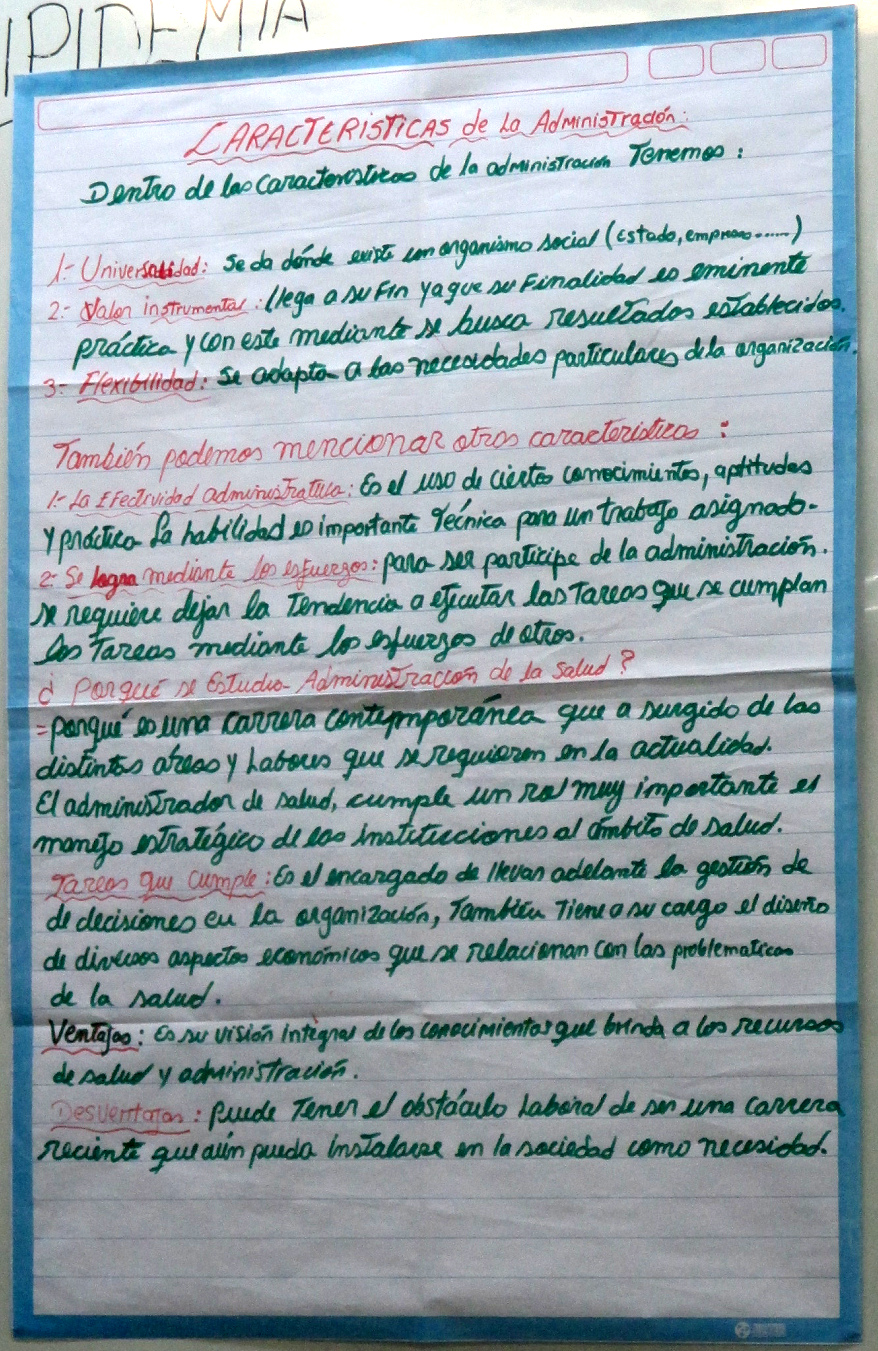 IPIDEMIA
CARACTERISTICAS de La Administración:
Dentro de las caracteristicas de la administración Tenemos:
1.- Universalidad: Se da dónde existe un organismo social (Estado, empresas......)
2.- Valor instrumental: llega a su Fin ya que su Finalidad es eminente
práctica y con este mediante se busca resultados establecidos.
3.- Flexibilidad: Se adapta a las necesidades particulares de la organización.
También podemos mencionar otros caracteristicas:
1.- La Efectividad administrativa: Es el uso de ciertos conocimientos, aptitudes
y práctica La habilidad es importante Técnica para un trabajo asignado.
2.- Se logra mediante los esfuerzos: para ser participe de la administración.
se requiere dejar la Tendencia a ejecutar las Tareas que se cumplan
las Tareas mediante los esfuerzos de otros.
¿ Porqué se Estudia Administración de la Salud?
= porqué es una carrera contemporánea que a surgido de las
distintas aŕeas y Labores que se requieren en la actualidad.
El administrador de salud, cumple un rol muy importante el
manejo estratégico de las instituciones al ámbito de salud.
Tareas que cumple: Es el encargado de llevar adelante la gestión de
de decisiones en la organización, También Tiene a su cargo el diseño
de diversos aspectos económicos que se relacionan con las problematicas
de la salud.
Ventajas: Es su visión integral de los conocimientos que brinda a los recursos
de salud y administración.
Desventajas: puede Tener el obstáculo Laboral de ser una carrera
reciente que aún pueda instalarse en la sociedad como necesidad.